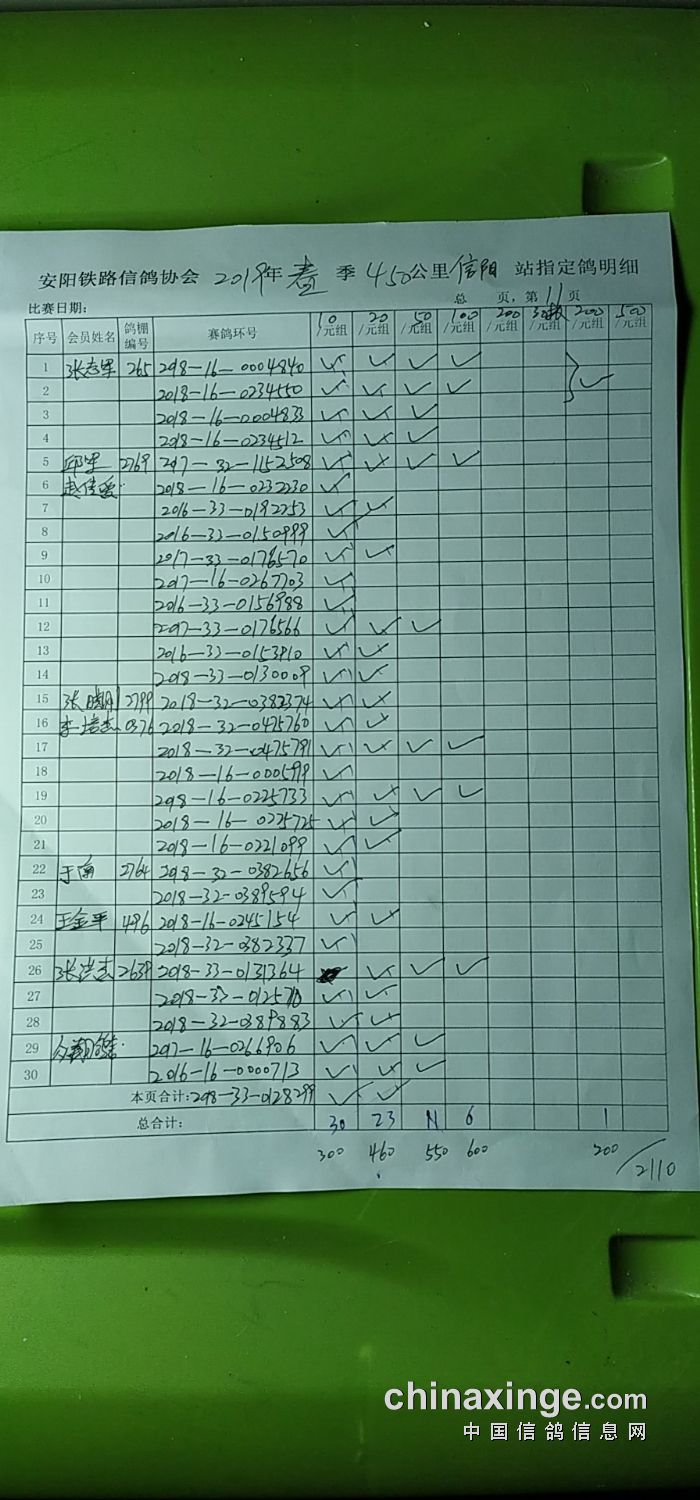 安阳铁路信鸽协会 2019年 春 季 450公里 信阳 站指定鸽明细
比赛日期: 总 页, 第 11 页
序号 会员姓名 鸽棚编号 赛鸽环号 10/元组 20/元组 50/元组 100/元组 200/元组 /元组 200/元组 500/元组
1 张志军 265 2018-16-0004840 ✓ ✓ ✓ ✓
2 2018-16-0234550 ✓ ✓ ✓ ✓ } ✓
3 2018-16-0004833 ✓ ✓ ✓
4 2018-16-0234512 ✓ ✓ ✓
5 邱军 2769 2017-32-1152508 ✓ ✓ ✓ ✓
6 2018-16-0232230 ✓
7 2016-33-0192253 ✓ ✓
8 2016-33-0150999 ✓
9 2017-33-0176570 ✓ ✓
10 2017-16-0267703 ✓
11 2016-33-0156988 ✓
12 2017-33-0176566 ✓ ✓ ✓
13 2016-33-0153910 ✓ ✓
14 2018-33-0130009 ✓ ✓
15 张 2799 2018-32-0382374 ✓ ✓
16 李 0376 2018-32-0475760 ✓ ✓
17 2018-32-0475791 ✓ ✓ ✓ ✓
18 2018-16-0005999 ✓
19 2018-16-0225733 ✓ ✓ ✓ ✓
20 2018-16-0225725 ✓ ✓
21 2018-16-0221099 ✓ ✓
22 于南 2764 2018-32-0382656 ✓
23 2018-32-0389594 ✓
24 王金平 496 2018-16-0245154 ✓ ✓
25 2018-32-0382337 ✓
26 张洪志 2639 2018-33-0131364 ✓ ✓ ✓
27 2018-33- ✓ ✓
28 2018-32-0389883 ✓ ✓
29 2017-16-0266906 ✓ ✓ ✓
30 2016-16-0000713 ✓ ✓ ✓
本页合计: 2018-33-0128299 ✓ ✓
总合计: 30 23 11 6 1
300 460 550 600 200 / 2110
chinaxinge.com
中国信鸽信息网